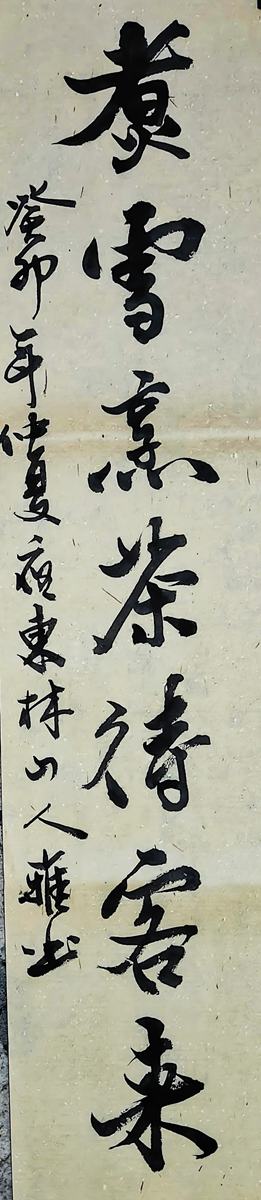 煮雪烹茶待客来
癸卯年仲夏夜東林山人雅出